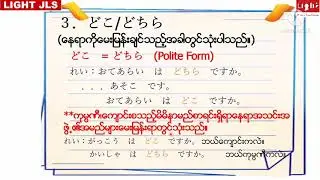 LIGHT JLS
Light
3. どこ/どちら
(နေရာကိုမေးမြန်းချင်သည့်အခါတွင်သုံးပါသည်။)
どこ = どちら (Polite Form)
れい：おてあらい は どちら ですか。
. . . あそこ です。
おてあらい は どこ ですか。
**ကုမ္ပဏီ၊ကျောင်းစသည့်မိမိနာမည်စာရင်းရှိရာနေရာအသင်းအ
ဖွဲ့၏အမည်များမေးမြန်းရာတွင်သုံးသည်။
れい：がっこう は どこ ですか。 ဘယ်ကျောင်းကလဲ။
かいしゃ は どちら ですか。 ဘယ်ကုမ္ပဏီကလဲ။